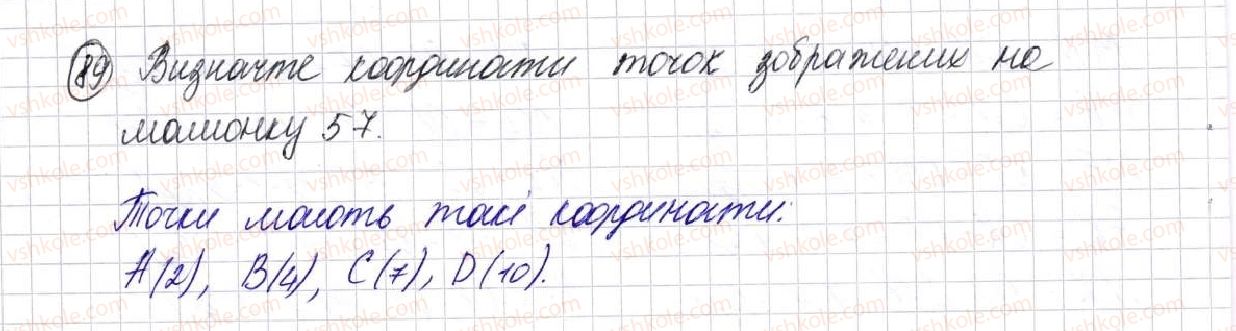 89 Визначте координати точок зображених на
малюнку 57.
Точки мають такі координати:
A(2), B(4), C(7), D(10).